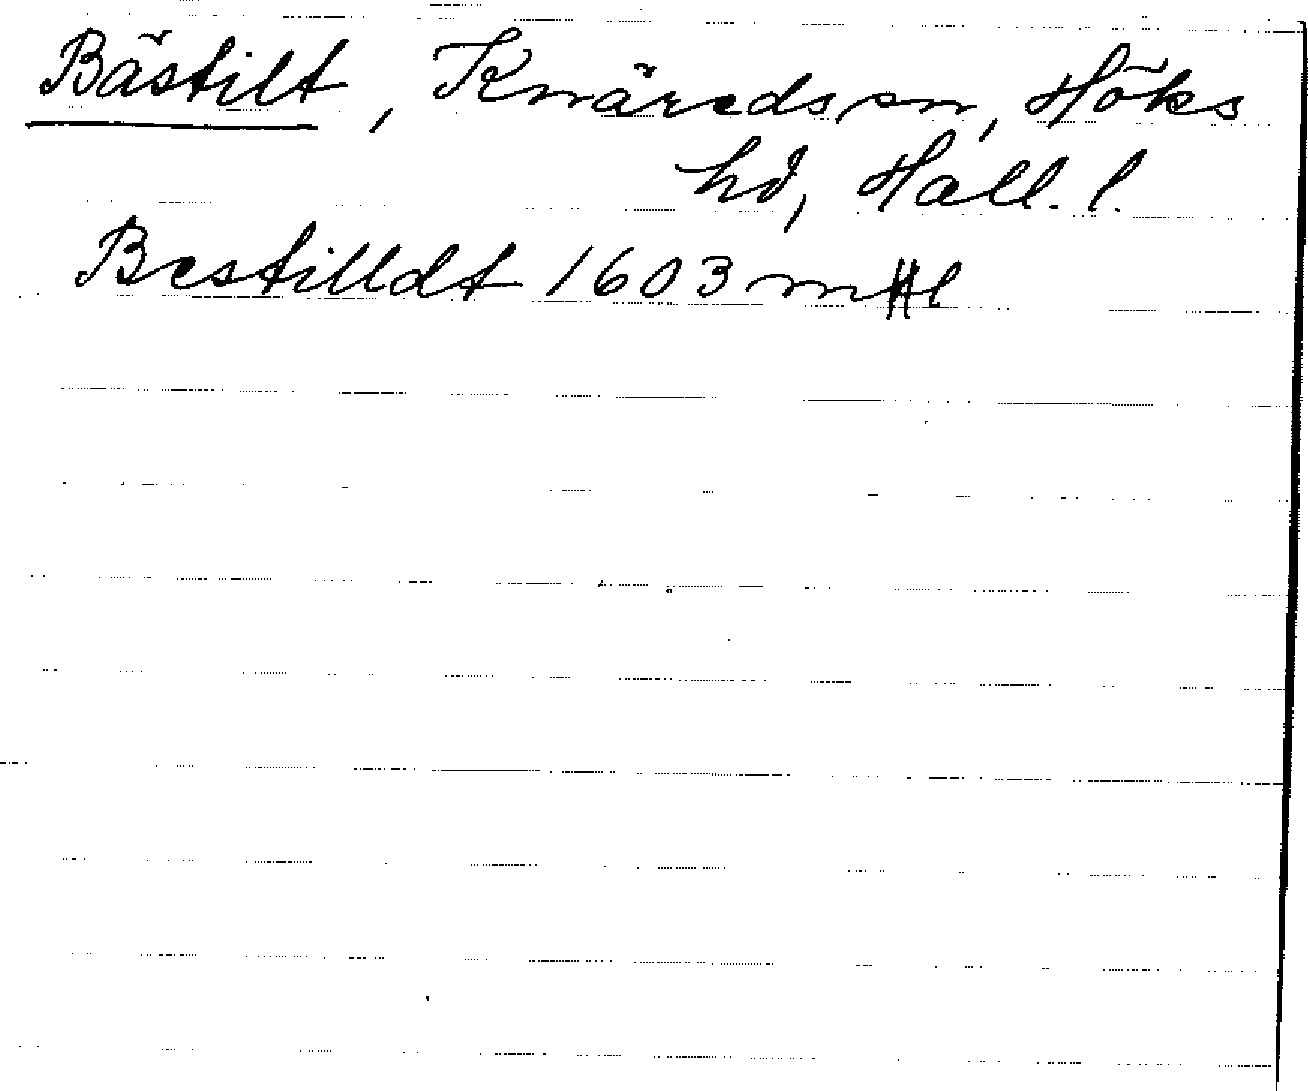 Bästilt, Knäreds sn, Höks
hd, Hall. l.
Bestilldt 1603 m